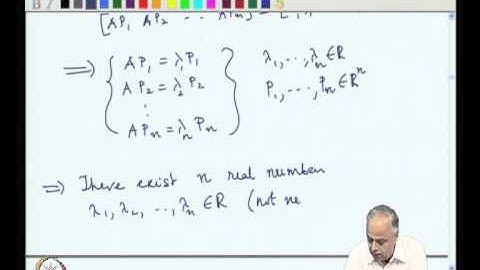 [AP₁ AP₂ ... APₙ] =
⟹ { AP₁ = λ₁P₁
AP₂ = λ₂P₂
⋮
APₙ = λₙPₙ }
λ₁, ..., λₙ ∈ R
P₁, ..., Pₙ ∈ Rⁿ
⟹ There exist n real number
λ₁, λ₂, ..., λₙ ∈ R (not ne